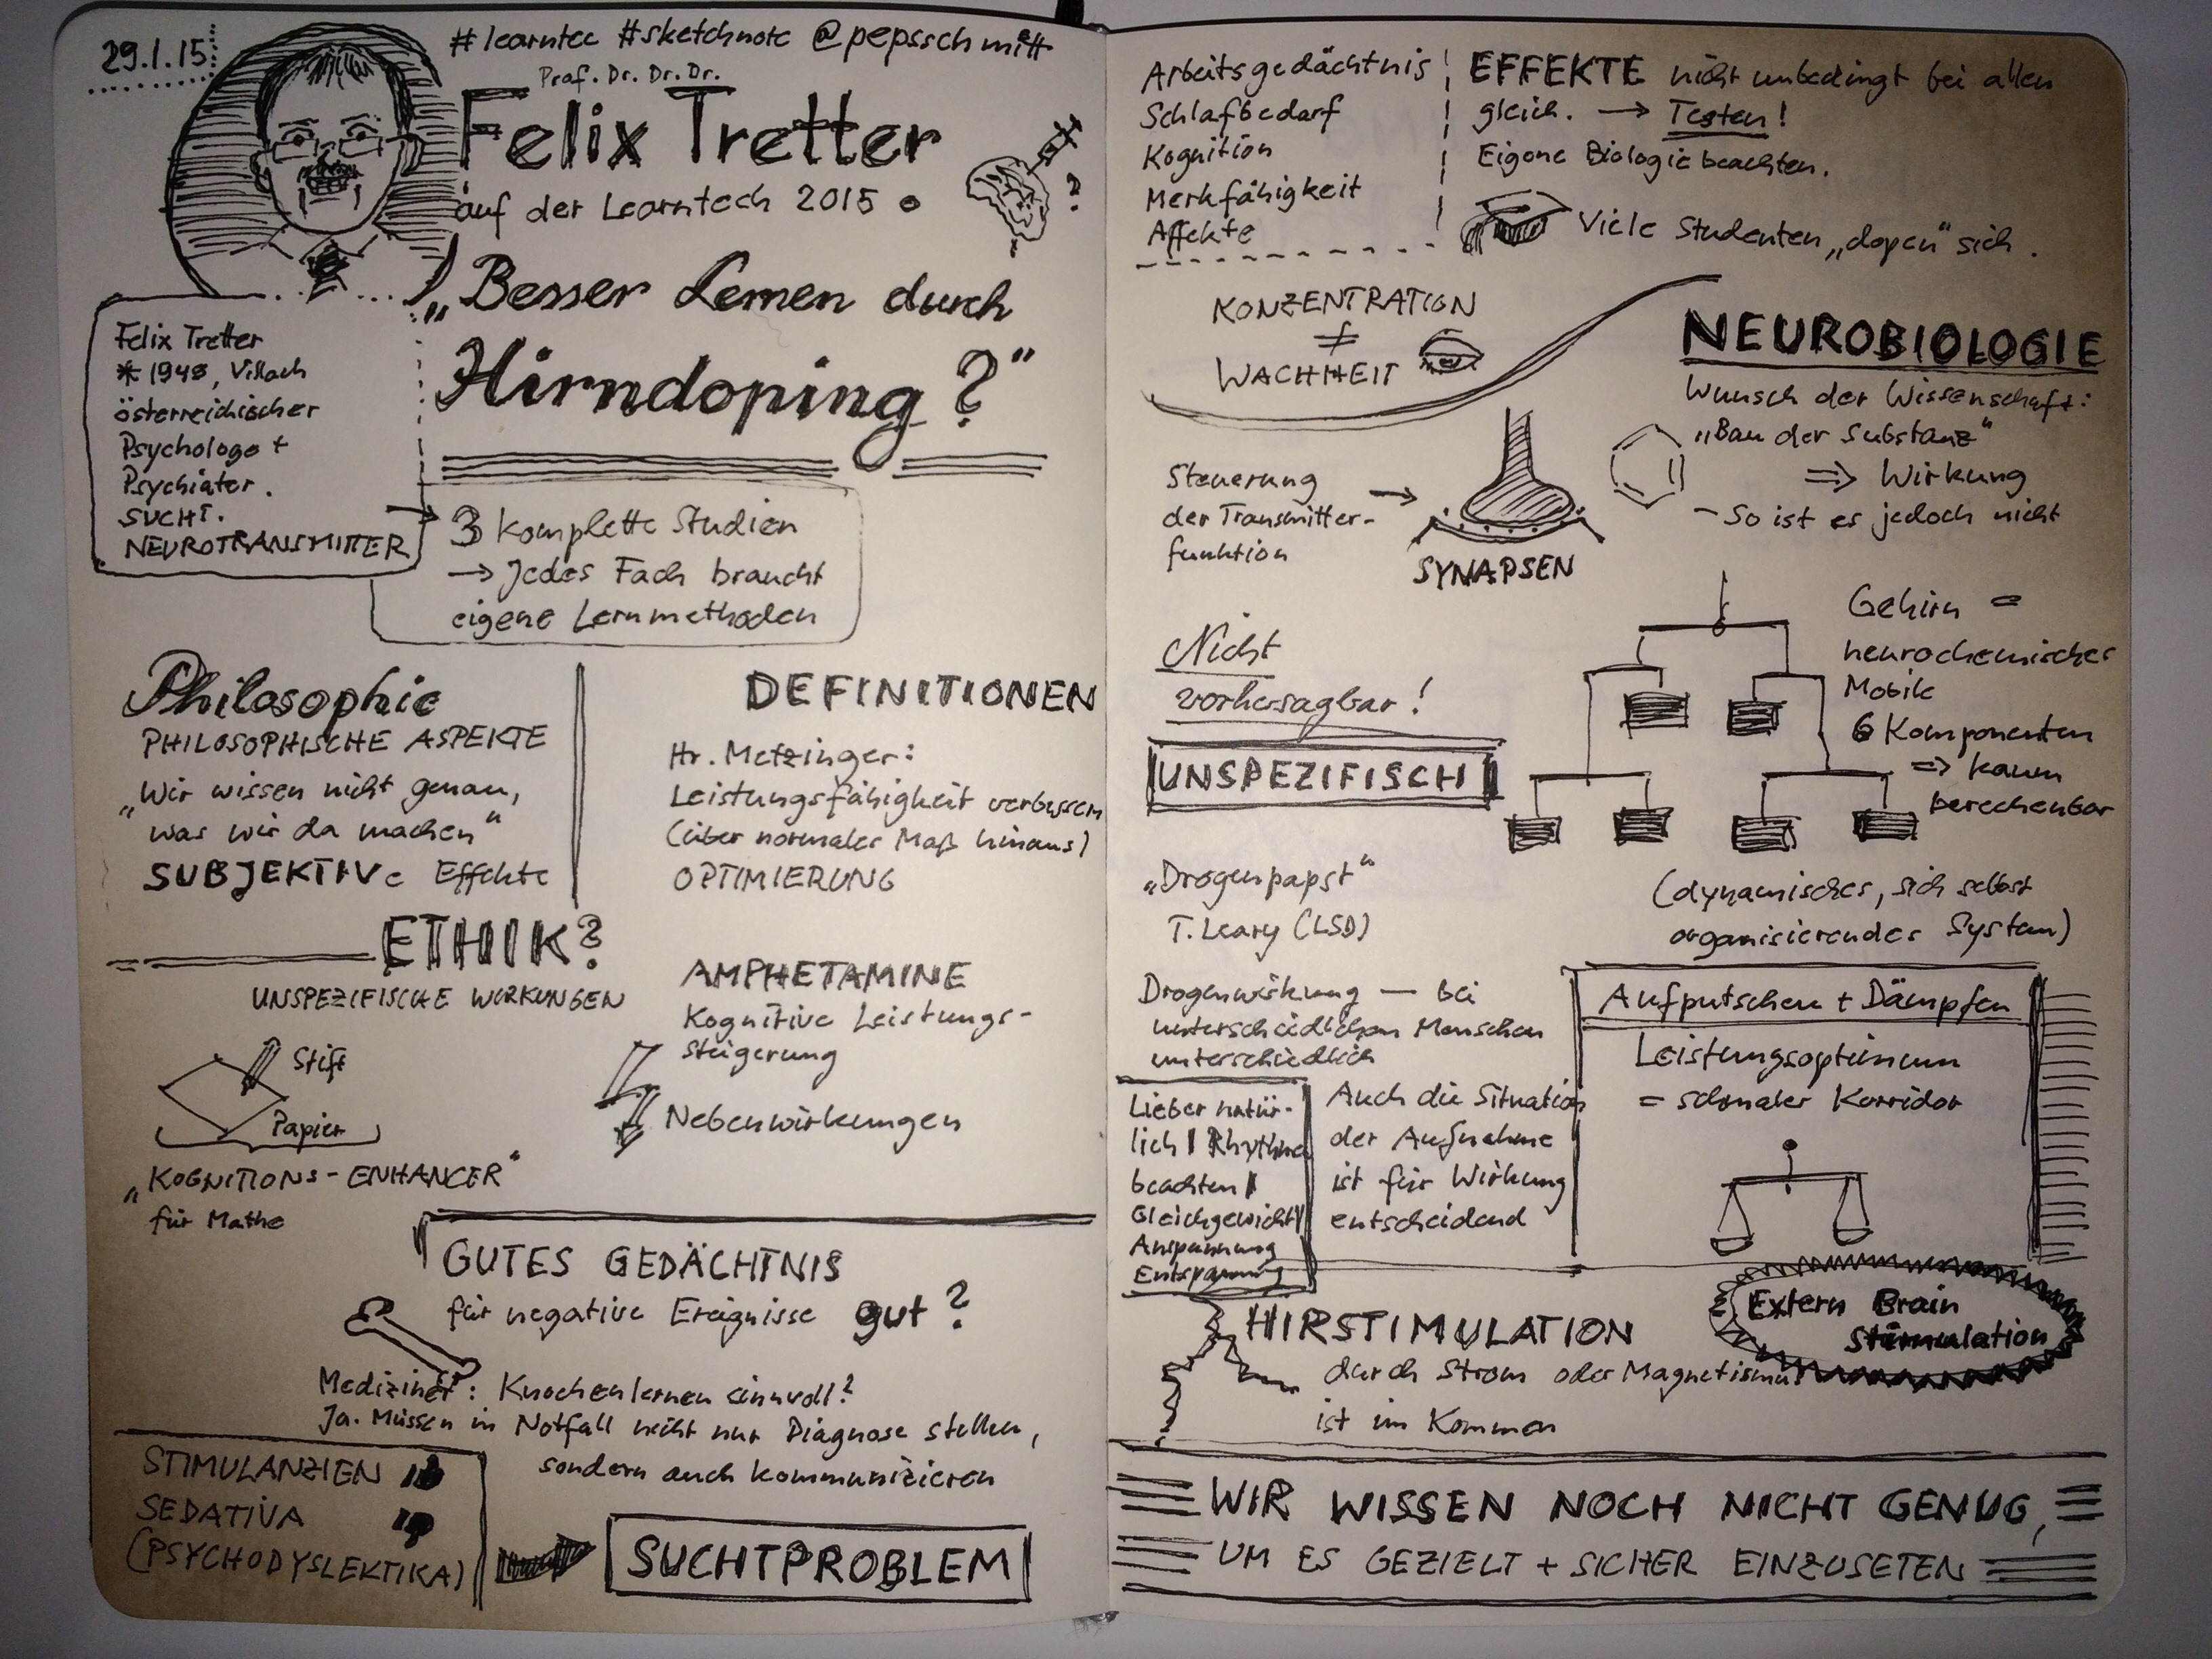 29.1.15
#learntec #sketchnote @pepsschmitt
Prof. Dr. Dr. Dr.
Felix Tretter
auf der Learntech 2015
?
„Besser Lernen durch
Hirndoping?“
Felix Tretter
* 1948, Villach
österreichischer
Psychologe +
Psychiater.
SUCHT.
NEUROTRANSMITTER
3 komplette Studien
→ Jedes Fach braucht
eigene Lernmethoden
Philosophie
PHILOSOPHISCHE ASPEKTE
„Wir wissen nicht genau,
was wir da machen“
SUBJEKTIVe Effekte
DEFINITIONEN
Hr. Metzinger:
Leistungsfähigkeit verbessern
(über normales Maß hinaus)
OPTIMIERUNG
ETHIK?
UNSPEZIFISCHE WIRKUNGEN
Stift
Papier
„KOGNITIONS-ENHANCER“
für Mathe
AMPHETAMINE
Kognitive Leistungs-
steigerung
Nebenwirkungen
GUTES GEDÄCHTNIS
für negative Ereignisse gut?
Mediziner: Knochenlernen sinnvoll?
Ja. Müssen in Notfall nicht nur Diagnose stellen,
sondern auch kommunizieren
STIMULANZIEN
SEDATIVA
(PSYCHODYSLEKTIKA)
SUCHTPROBLEM
Arbeitsgedächtnis
Schlafbedarf
Kognition
Merkfähigkeit
Affekte
EFFEKTE nicht unbedingt bei allen
gleich. → Testen!
Eigene Biologie beachten.
Viele Studenten „dopen“ sich.
KONZENTRATION
≠
WACHHEIT
NEUROBIOLOGIE
Wunsch der Wissenschaft:
„Bau der Substanz“
⇒ Wirkung
- So ist es jedoch nicht
Steuerung →
der Transmitter-
funktion
SYNAPSEN
Nicht
vorhersagbar!
UNSPEZIFISCH
Gehirn =
neurochemisches
Mobile
6 Komponenten
⇒ kaum
berechenbar
(dynamisches, sich selbst
organisierendes System)
„Drogenpapst“
T. Leary (LSD)
Drogenwirkung — bei
unterschiedlichen Menschen
unterschiedlich
Lieber natür-
lich | Rhythmen
beachten |
Gleichgewicht
Anspannung
Entspannung
Auch die Situation
der Aufnahme
ist für Wirkung
entscheidend
Aufputschen + Dämpfen
Leistungsoptimum
= schmaler Korridor
HIRSTIMULATION
durch Strom oder Magnetismus
ist im Kommen
Extern Brain
Stimulation
WIR WISSEN NOCH NICHT GENUG,
UM ES GEZIELT + SICHER EINZUSETEN